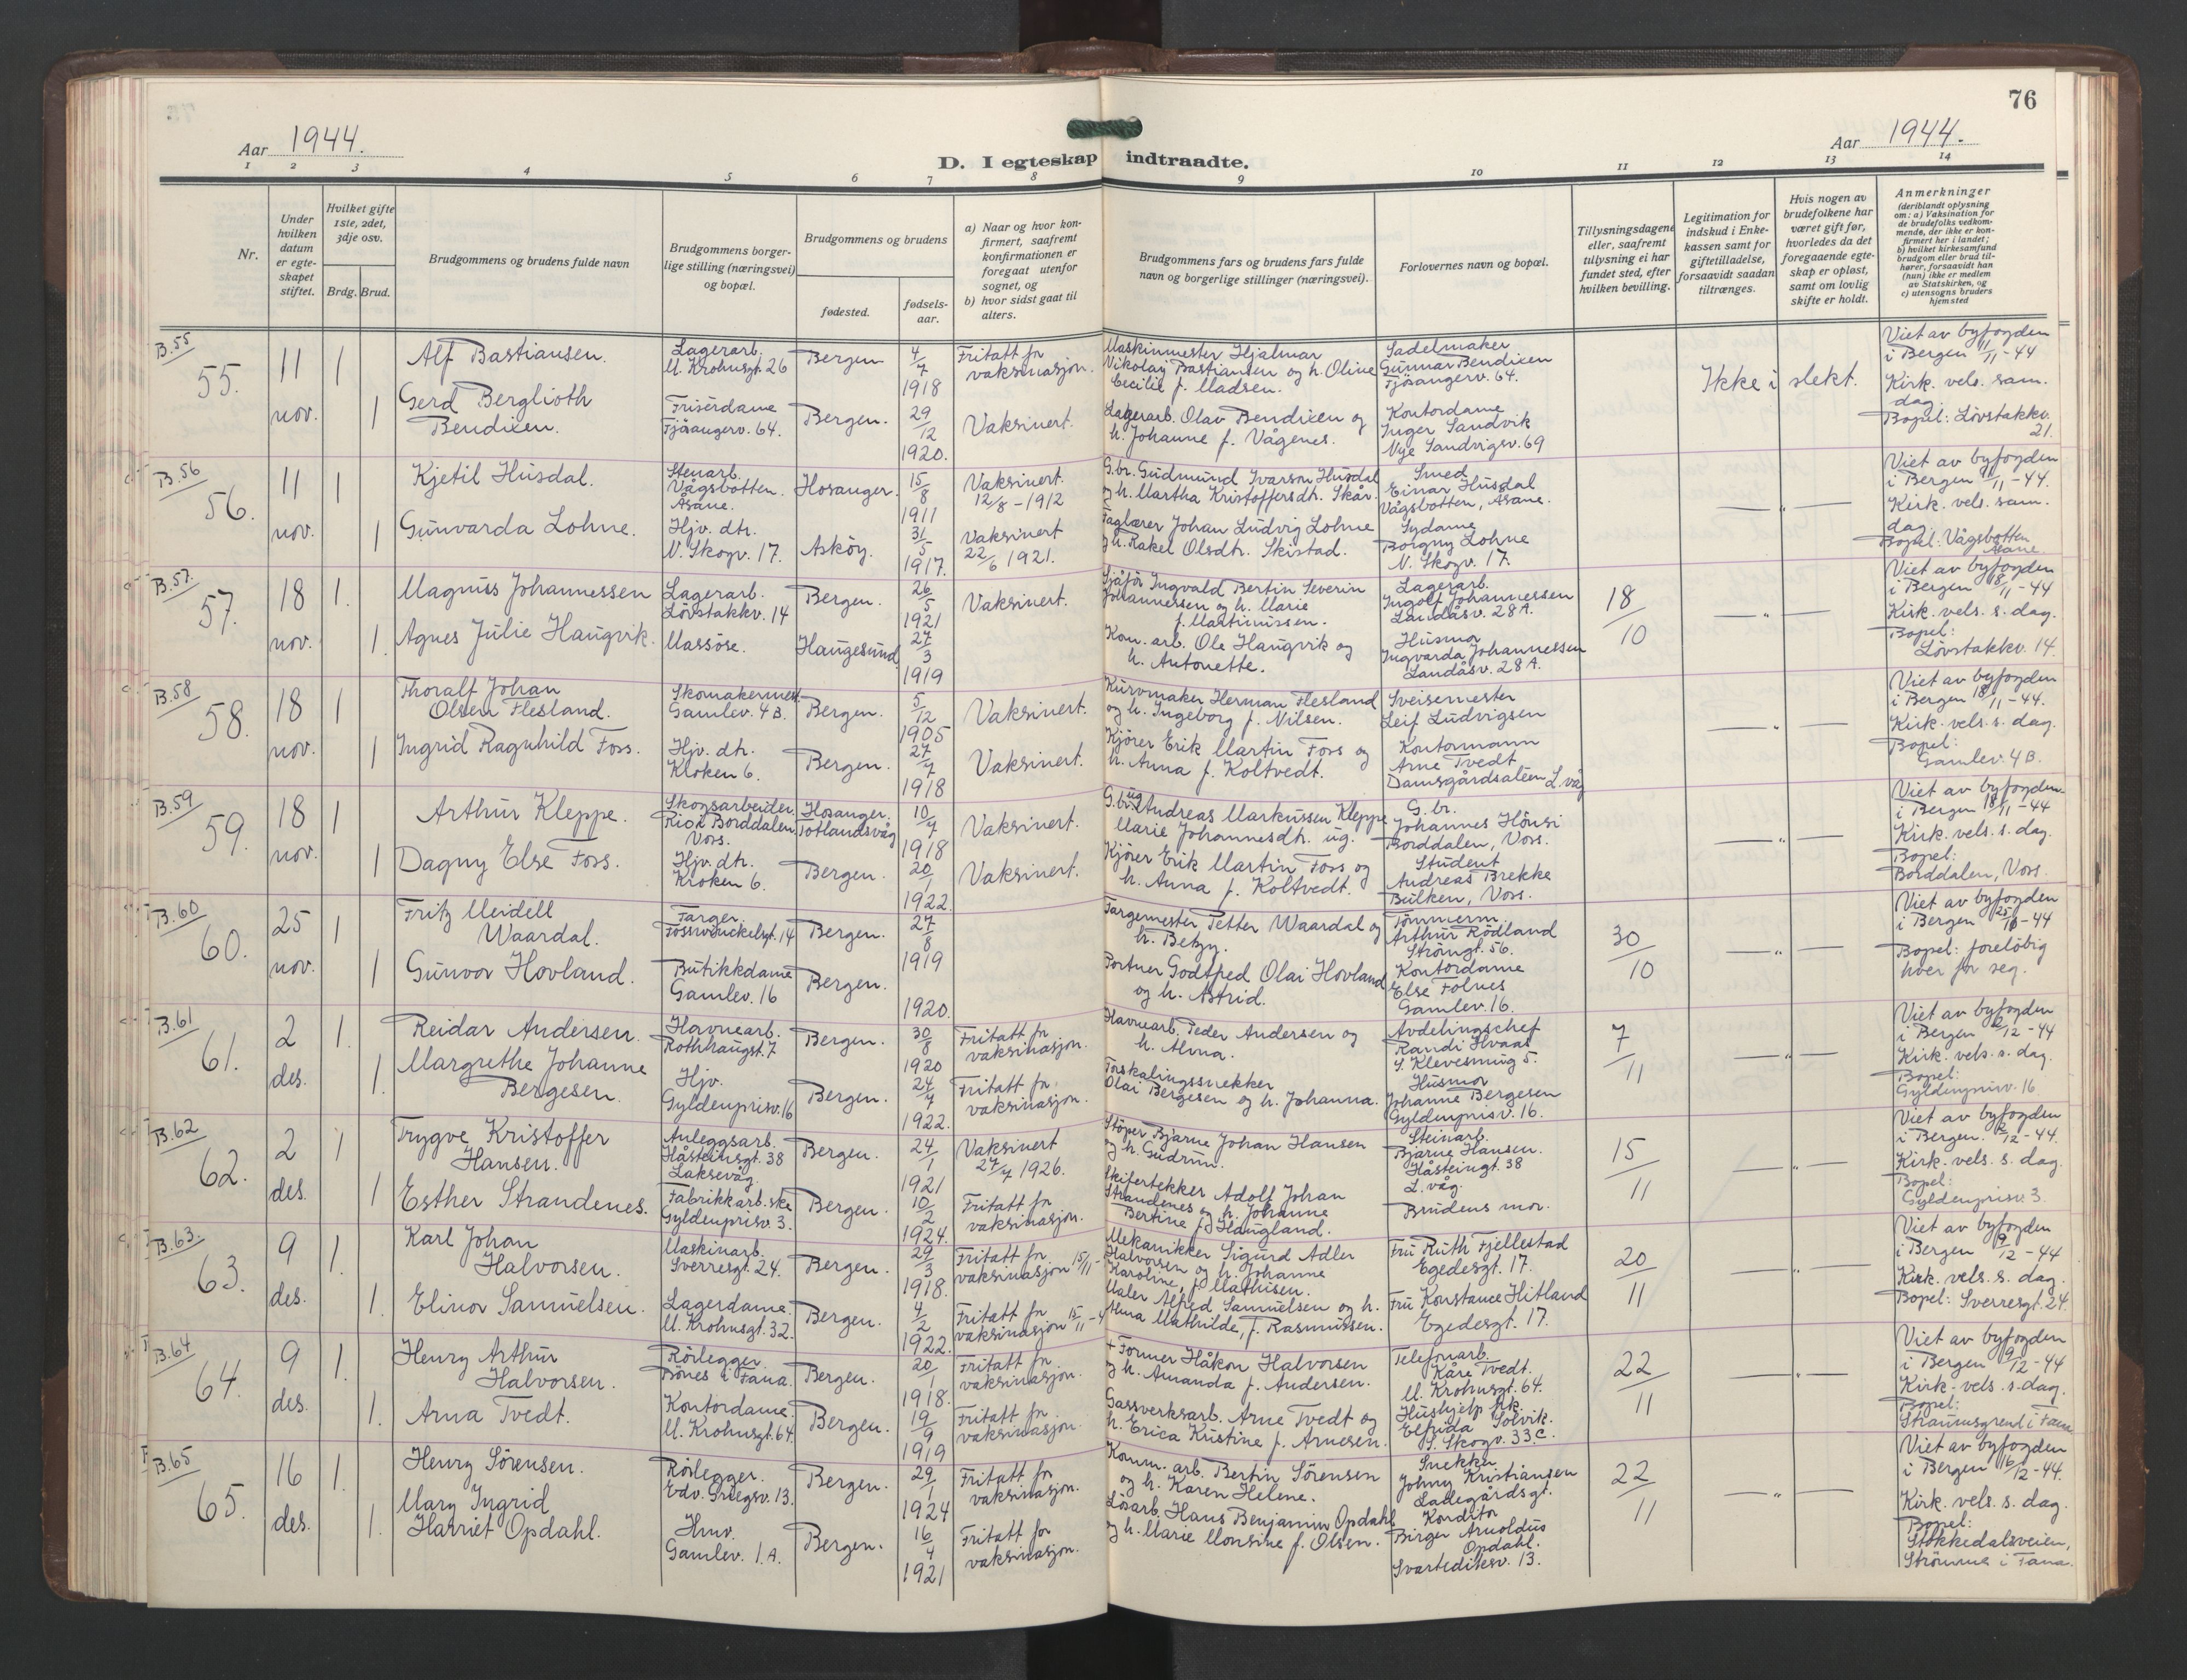 76
Aar 1944.
D. I egteskap indtraadte.
Aar 1944.
1 2 3 4 5 6 7 8 9 10 11 12 13 14
Nr.
Under hvilken datum er egte-skapet stiftet.
Hvilket gifte 1ste, 2det, 3dje osv.
Brdg. Brud.
Brudgommens og brudens fulde navn
Brudgommens borger-lige stilling (næringsvei) og bopæl.
Brudgommens og brudens
fødested.
fødsels-aar.
a) Naar og hvor kon-firmert, saafremt konfirmationen er foregaat utenfor sognet, og
b) hvor sidst gaat til alters.
Brudgommens fars og brudens fars fulde navn og borgerlige stillinger (næringsvei).
Forlovernes navn og bopæl.
Tillysningsdagene eller, saafremt tillysning ei har fundet sted, efter hvilken bevilling.
Legitimation for indskud i Enke-kassen samt for giftetilladelse, forsaavidt saadan tiltrænges.
Hvis nogen av brudefolkene har været gift før, hvorledes da det foregaaende egte-skap er opløst, samt om lovlig skifte er holdt.
Anmerkninger
(deriblandt oplysning om: a) Vaksination for de brudefolks vedkom-mende, der ikke er kon-firmert her i landet; b) hvilket kirkesamfund brudgom eller brud til-hører, forsaavidt han (hun) ikke er medlem av Statskirken, og c) utensogns bruders hjemsted
B.55
55. 11 nov. 1
Alf Bastiansen.
Lagerarb.
M. Krohnsgt. 26
Bergen 4/7 1918
Fritatt for vaksinasjon.
Maskinmester Hjalmar
Nikolay Bastiansen og h. Oline
Cecilie f. Madsen.
Sadelmaker
Gunnar Bendixen
Fjøsangerv. 64.
Ikke i slekt.
Viet av byfogden
i Bergen 11/11-44
Kirk. vels. sam.
dag.
Bopel: Løvstakkv.
21.
1 Gerd Berglioth
Bendixen.
Frisørdame
Fjøsangerv. 64.
Bergen. 29/12 1920.
Vaksinert.
Lagerarb. Olav Bendixen og
h. Johanne f. Vågenes.
Kontordame
Inger Sandvik
Nye Sandvigsv. 69
B.56
56. 11 nov. 1
Kjetil Husdal.
Stenarb.
Vågsbotten.
Åsane.
Hosanger. 15/8 1911
Vaksinert.
12/8-1912
G.br. Gudmund Ivarson Husdal
og h. Martha Kristoffersdh. Skår.
Smed
Einar Husdal
Vågsbotten, Åsane.
— „ —
Viet av byfogden
i Bergen 11/11-44.
Kirk. vels. sam.
dag.
Bopel: Vågsbotten
Åsane.
1 Gunvarda Lohne.
Hjv. dtr.
N. Skogv. 17.
Askøy. 31/5 1917.
Vaksinert
22/6 1921.
Faglærer Johan Ludvig Lohne
og h. Rakel Olsdh. Skistad.
Sydame
Borgny Lohne
N. Skogv. 17.
B.57.
57. 18 nov. 1.
Magnus Johannessen
Lagerarb.
Løvstakkv. 14
Bergen. 26/5 1921
Vaksinert.
Sjåfør Ingvald Bertin Severin
Johannessen og h. Marie
f. Martinussen.
Lagerarb.
Ingolf Johannessen
Landåsv. 28 A.
18/10
— „ —
Viet av byfogden
i Bergen 18/11-44
Kirk. vels. s. dag.
Bopel:
Løvstakkv. 14.
1. Agnes Julie Haugvik.
Massøse.
Haugesund 27/3 1919
Kom. arb. Ole Haugvik og
h. Antonette.
Husmor
Ingvarda Johannessen
Landåsv. 28 A.
B.58
58. 18 nov. 1
Thoralf Johan
Olsen Flesland.
Skomakermest.
Gamlev. 4 B.
Bergen. 5/12 1905
Vaksinert.
Kurvmaker Herman Flesland
og h. Ingeborg f. Nilsen.
Sveisemester
Leif Ludvigsen
— „ —
Viet av byfogden
i Bergen 18/11-44.
Kirk. vels. s. dag.
Bopel:
Gamlev. 4 B.
1 Ingrid Ragnhild Foss.
Hjv. dtr.
Kroken 6.
Bergen. 27/7 1918
Vaksinert.
Kjører Erik Martin Foss og
h. Anna f. Koltvedt.
Kontormann
Arne Tvedt
Damsgårdsaleen L.våg
B.59
59. 18 nov. 1
Arthur Kleppe.
Skogsarbeider
Borddalen
Voss.
Hosanger.
Totlandsvåg 10/7 1918
Vaksinert.
G.br. ug. Andreas Markussen Kleppe
Marie Johannesdh. ug.
G.br.
Johannes Hønsi
Borddalen, Voss.
— „ —
Viet av byfogden
i Bergen 18/11-44
Kirk. vels. s. dag.
Bopel:
Borddalen, Voss.
1 Dagny Else Foss.
Hjv. dtr.
Kroken 6.
Bergen. 20/1 1922.
Vaksinert.
Kjører Erik Martin Foss og
h. Anna f. Koltvedt.
Student
Andreas Brekke
Bulken, Voss.
B.60
60. 25 nov. 1
Fritz Meidell
Waardal.
Farger.
Fosswinckelsgt. 14
Bergen. 27/8 1919
Fargemester Petter Waardal og
h. Betzy.
Tømmerm.
Arthur Rødland
Strømgt. 56.
30/10
— „ —
Viet av byfogden
i Bergen 25/11-44
Bopel: foreløbig
hver for seg.
1 Gunvor Hovland.
Butikkdame
Gamlev. 16
Bergen. 1920.
Portner Godtfred Olai Hovland
og h. Astrid.
Kontordame
Else Folnes
Gamlev. 16.
B.61
61. 2 des. 1.
Reidar Andersen.
Havnearb.
Rothhaugst. 7
Bergen. 30/8 1920
Fritatt for
vaksinasjon.
Havnearb. Peder Andersen og
h. Alma.
Avdelingschef
Randi Hvaas
S. Klevesmug 5.
7/11
— „ —
Viet av byfogden
i Bergen 2/12-44
Kirk. vels. s. dag.
Bopel:
Gyldenprisv. 16
1. Margrethe Johanne
Bergesen.
Hjv.
Gyldenprisv. 16
Bergen. 24/7 1922.
Fritatt for
vaksinasjon.
Forskalingssnekker
Olai Bergesen og h. Johanna.
Husmor
Johanne Bergesen
Gyldenprisv. 16.
B.62
62. 2 des. 1
Trygve Kristoffer
Hansen.
Anleggsarb.
Håsteinsgt. 38
Laksevåg.
Bergen. 24/1 1921
Vaksinert
27/7 1926.
Støper Bjarne Johan Hansen
og h. Gudrun.
Steinarb.
Bjarne Hansen.
Håsteingt. 38
L. våg.
15/11
— „ —
Viet av byfogden
i Bergen. 2/12-44.
Kirk. vels. s. dag.
Bopel:
Gyldenprisv. 3
1 Esther Strandenes.
Fabrikkarb.ske
Gyldenprisv. 3.
Bergen. 10/2 1924.
Fritatt for
vaksinasjon.
Skifertekker Adolf Johan
Strandenes og h. Johanne
Bertine f. Haugland.
Brudens mor.
B.63.
63. 9 des. 1.
Karl Johan
Halvorsen.
Maskinarb.
Sverresgt. 24.
Bergen. 29/3 1918.
Fritatt for
vaksinasjon 15/11-
Mekanikker Sigurd Adler
Halvorsen og h. Johanne
Karoline, f. Mathisen.
Fru Ruth Fjellestad
Egedesgt. 17.
20/11
— „ —
Viet av byfogden
i Bergen 9/12-44
Kirk. vels. s. dag.
Bopel: Sverresgt. 24.
1. Elinor Samuelsen.
Lagerdame.
M. Krohnsgt. 32.
Bergen. 4/2 1922.
Fritatt for
vaksinasjon 15/11-4
Maler Alfred Samuelsen og h.
Alma Mathilde, f. Rasmussen.
Fru Konstance Hitland
Egedesgt. 17.
B.64
64. 9 des. 1.
Henry Arthur
Halvorsen.
Rørlegger.
Bønes i Fana.
Bergen. 20/1 1918.
Fritatt for
vaksinasjon.
+ Former Håkon Halvorsen
og h. Amanda f. Andersen.
Telefonarb.
Kåre Tvedt.
M. Krohnsgt. 64.
22/11
— „ —
Viet av byfogden
i Bergen 9/12-44
Kirk. vels. s. dag.
Bopel:
Straumsgrend i Fana
1. Arna Tvedt.
Kontordame.
M. Krohnsgt. 64.
Bergen. 19/9 1919
Fritatt for
vaksinasjon.
Gassverksarb. Arne Tvedt og
h. Erica Kristine f. Arnesen.
Hushjelp frk.
Elfrida Solvik.
S. Skogv. 33 c.
B.65
65. 16 des. 1.
Henry Sørensen.
Rørlegger.
Edv. Griegsv. 13.
Bergen. 29/1 1924
Fritatt for
vaksinasjon.
Komm. arb. Bertin Sørensen
og h. Karen Helene.
Snekker
Johny Kristiansen
Ladegårdsgt.
22/11
— „ —
Viet av byfogden
i Bergen 16/12-44.
Kirk. vels. s. dag.
Bopel:
Stokkedalsveien,
Strømme i Fana.
1. Mary Ingrid
Harriet Opdahl.
Hmv.
Gamlev. 1. A.
Bergen. 16/4 1921
Fritatt for
vaksinasjon.
Løsarb. Hans Benjamin Opdahl
og h. Marie Monsine f. Olsen.
Konditor
Birger Arnoldus
Opdahl.
Svartediksv. 13.